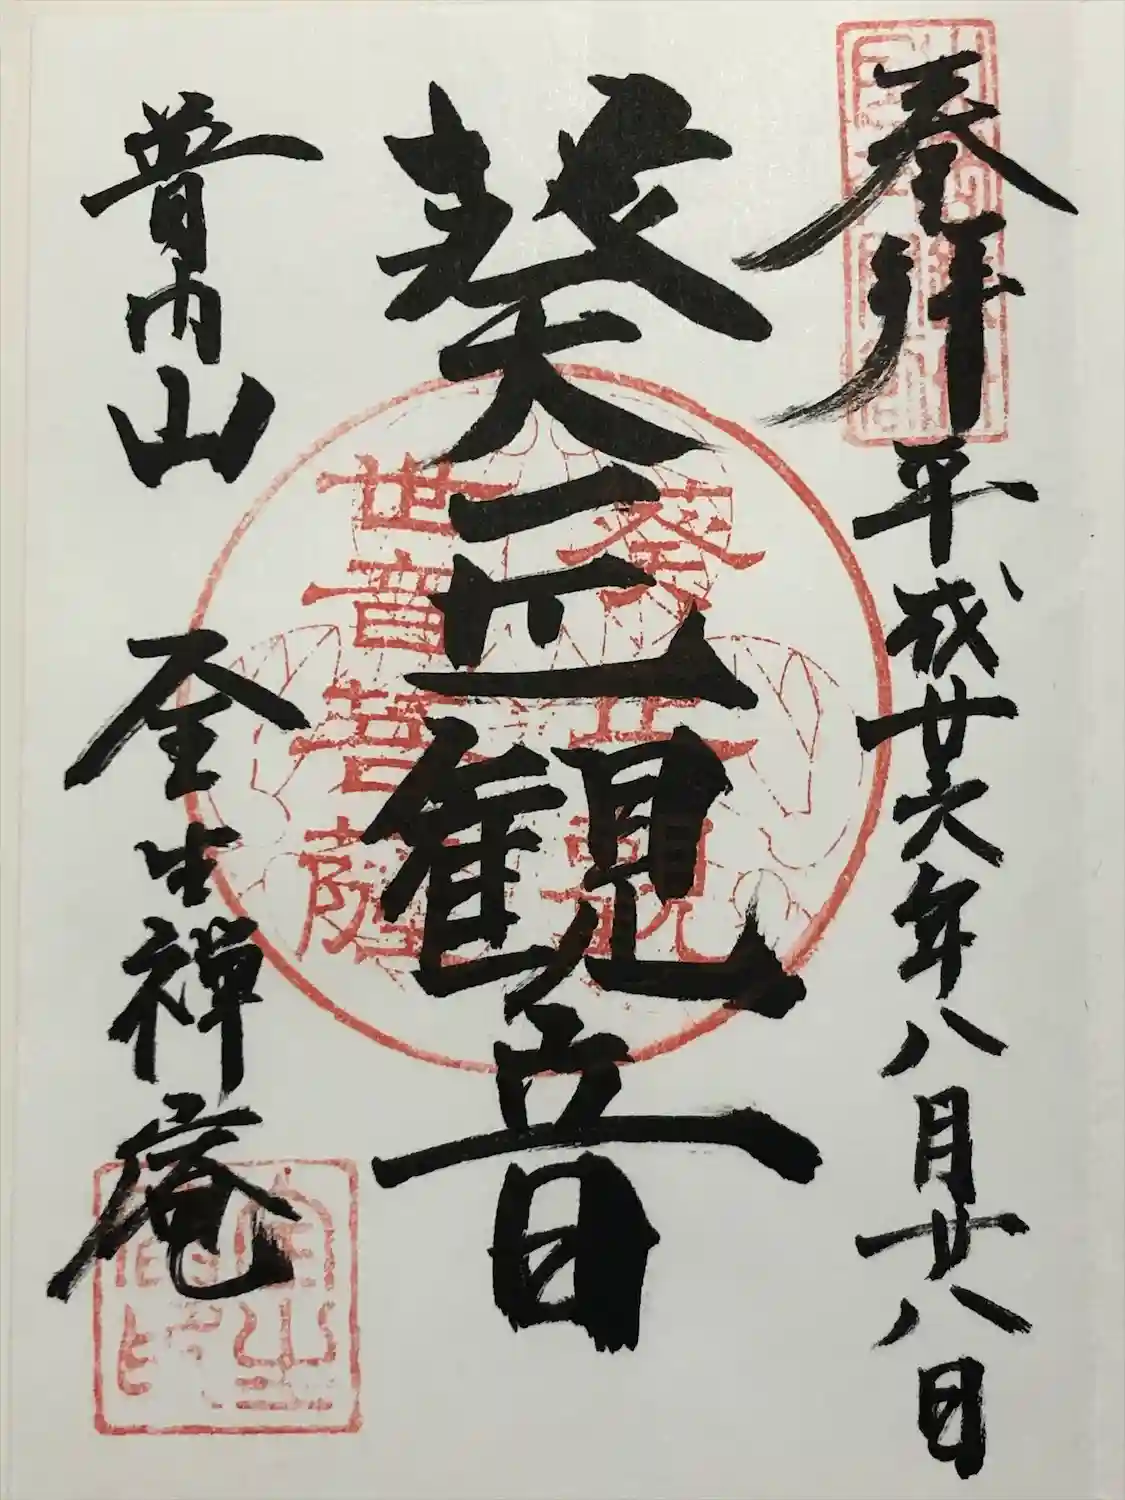 奉拝 平成廿六年八月廿八日
葵正観音
普門山 全生禪庵
葵正觀
世音菩薩